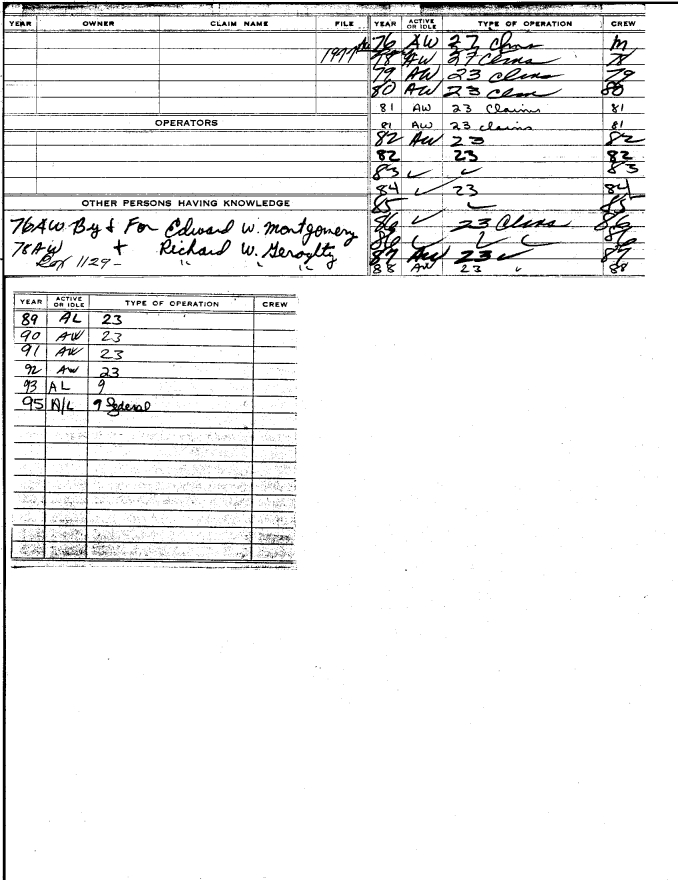 YEAR OWNER CLAIM NAME FILE
OPERATORS
OTHER PERSONS HAVING KNOWLEDGE
76 AW By & For Edward W. Montgomery
78 AW + Richard W. Geraghty
Box 1129 - " " "
YEAR ACTIVE OR IDLE TYPE OF OPERATION CREW
1977
76 AW 27 Clms m
78 AW 27 Clms 78
79 AW 23 Clms 79
80 AW 23 Clm 80
81 AW 23 Claims 81
81 AW 23 claims 81
82 AW 23 82
82 23 82
83 ✓ ✓ 83
84 ✓ 23 84
85 ✓ 85
86 ✓ 23 Clms 86
86 ✓ ✓ ✓ 86
87 AW 23 ✓ 87
88 AW 23 ✓ 88
YEAR ACTIVE OR IDLE TYPE OF OPERATION CREW
89 AL 23
90 AW 23
91 AW 23
92 AW 23
93 AL 9
95 A/L 9 Federal